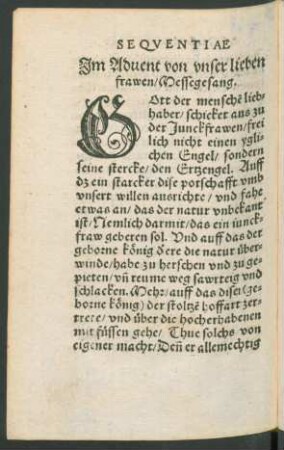 SEQVENTIAE
Jm Aduent von vnser lieben
frawen/Messegesang.
GOtt der menschē lieb-
haber/schicket ans zu
der Junckfrawen/frei
lich nicht einen yglı-
chen Engel/sondern
seine stercke/den Ertzengel. Auff
dz ein starcker dise potschafft vmb
vnsert willen ausrichte/vnd fahe
etwas an/das der natur vnbekant
ist/Nemlich darmit/das ein iunck-
fraw geberen sol. Vnd auff das der
geborne könig dere die natur über-
winde/habe zu herschen vnd zu ge-
pieten/vñ reume weg sawrteig vnd
schlacken. Mehr/auff das diser (ge-
borne könig) der stoltzē hoffart zer-
trete/vnd über die hocherhabenen
mit füssen gehe/Thue solchs von
eigener macht/Deñ er allmechtig